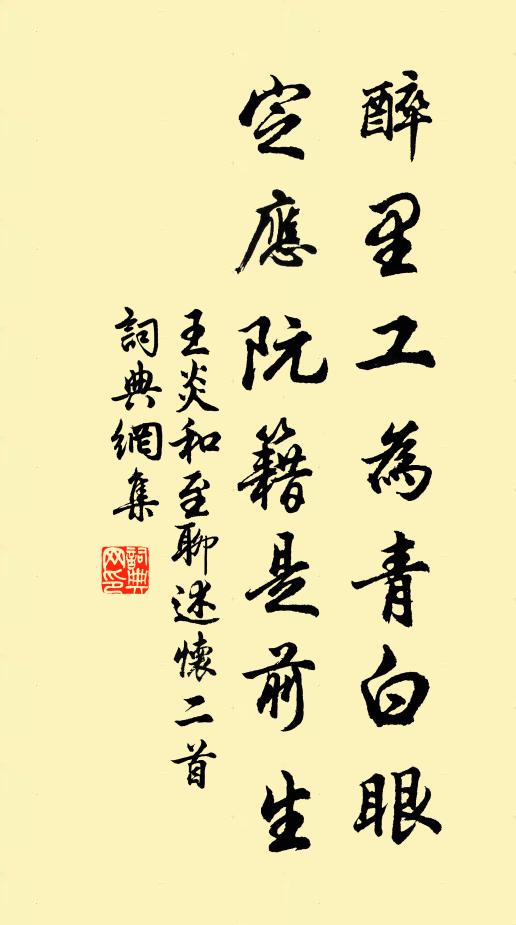 醉里工為青白眼
定應阮籍是前生
王炎和至聊述懷二首
詞典網集
詞典
网印